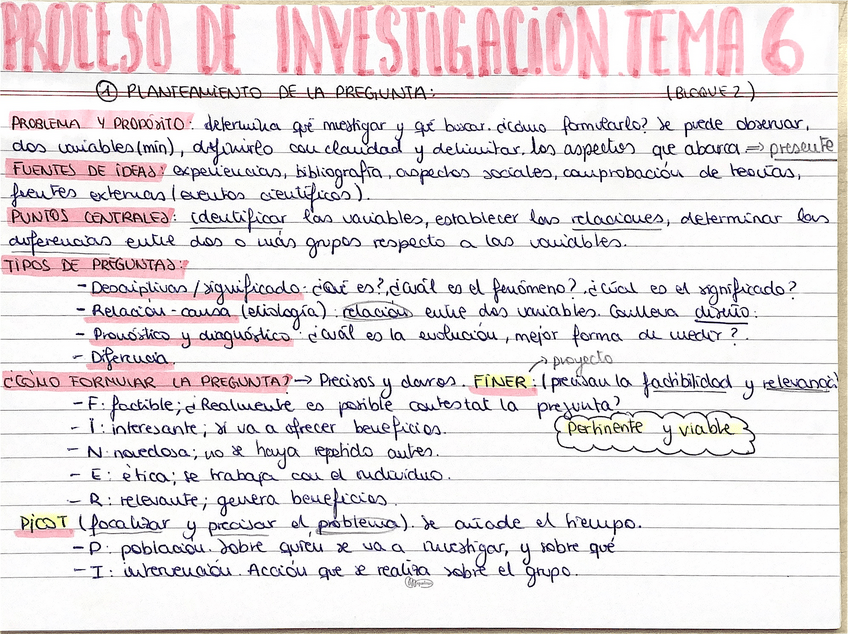 PROCESO DE INVESTIGACION.TEMA 6
① PLANTEAMIENTO DE LA PREGUNTA: (BLOQUE 2)
PROBLEMA Y PROPÓSITO: determina qué investigar y qué buscar. ¿cómo formularlo? Se puede observar,
dos variables (min), definirlo con claridad y delimitar. los aspectos que abarca ⇒ presente
FUENTES DE IDEAS: experiencias, bibliografía, aspectos sociales, comprobación de teorías,
fuentes externas (eventos científicos).
PUNTOS CENTRALES: identificar las variables, establecer las relaciones, determinar las
diferencias entre dos o más grupos respecto a las variables.
TIPOS DE PREGUNTAS:
- Descriptivas/significado: ¿Qué es?, ¿cuál es el fenómeno? ¿cuál es el significado?
- Relación-causa (etiología): relación entre dos variables. Conlleva diseño.
- Pronóstico y diagnóstico: ¿cuál es la evolución, mejor forma de medir?.
- Diferencia.
→ proyecto
¿CÓMO FORMULAR LA PREGUNTA? → Precisos y claros. FINER: (precisan la factibilidad y relevancia)
- F: factible; ¿Realmente es posible contestar la pregunta?
- I: interesante; si va a ofrecer beneficios.
Pertinente y viable
- N: novedosa; no se haya repetido antes.
- E: ética; se trabaja con el individuo.
- R: relevante; genera beneficios.
PICOT (focalizar y precisar el problema). Se añade el tiempo.
- P: población. Sobre quién se va a investigar, y sobre qué
- I: intervención. Acción que se realiza sobre el grupo.